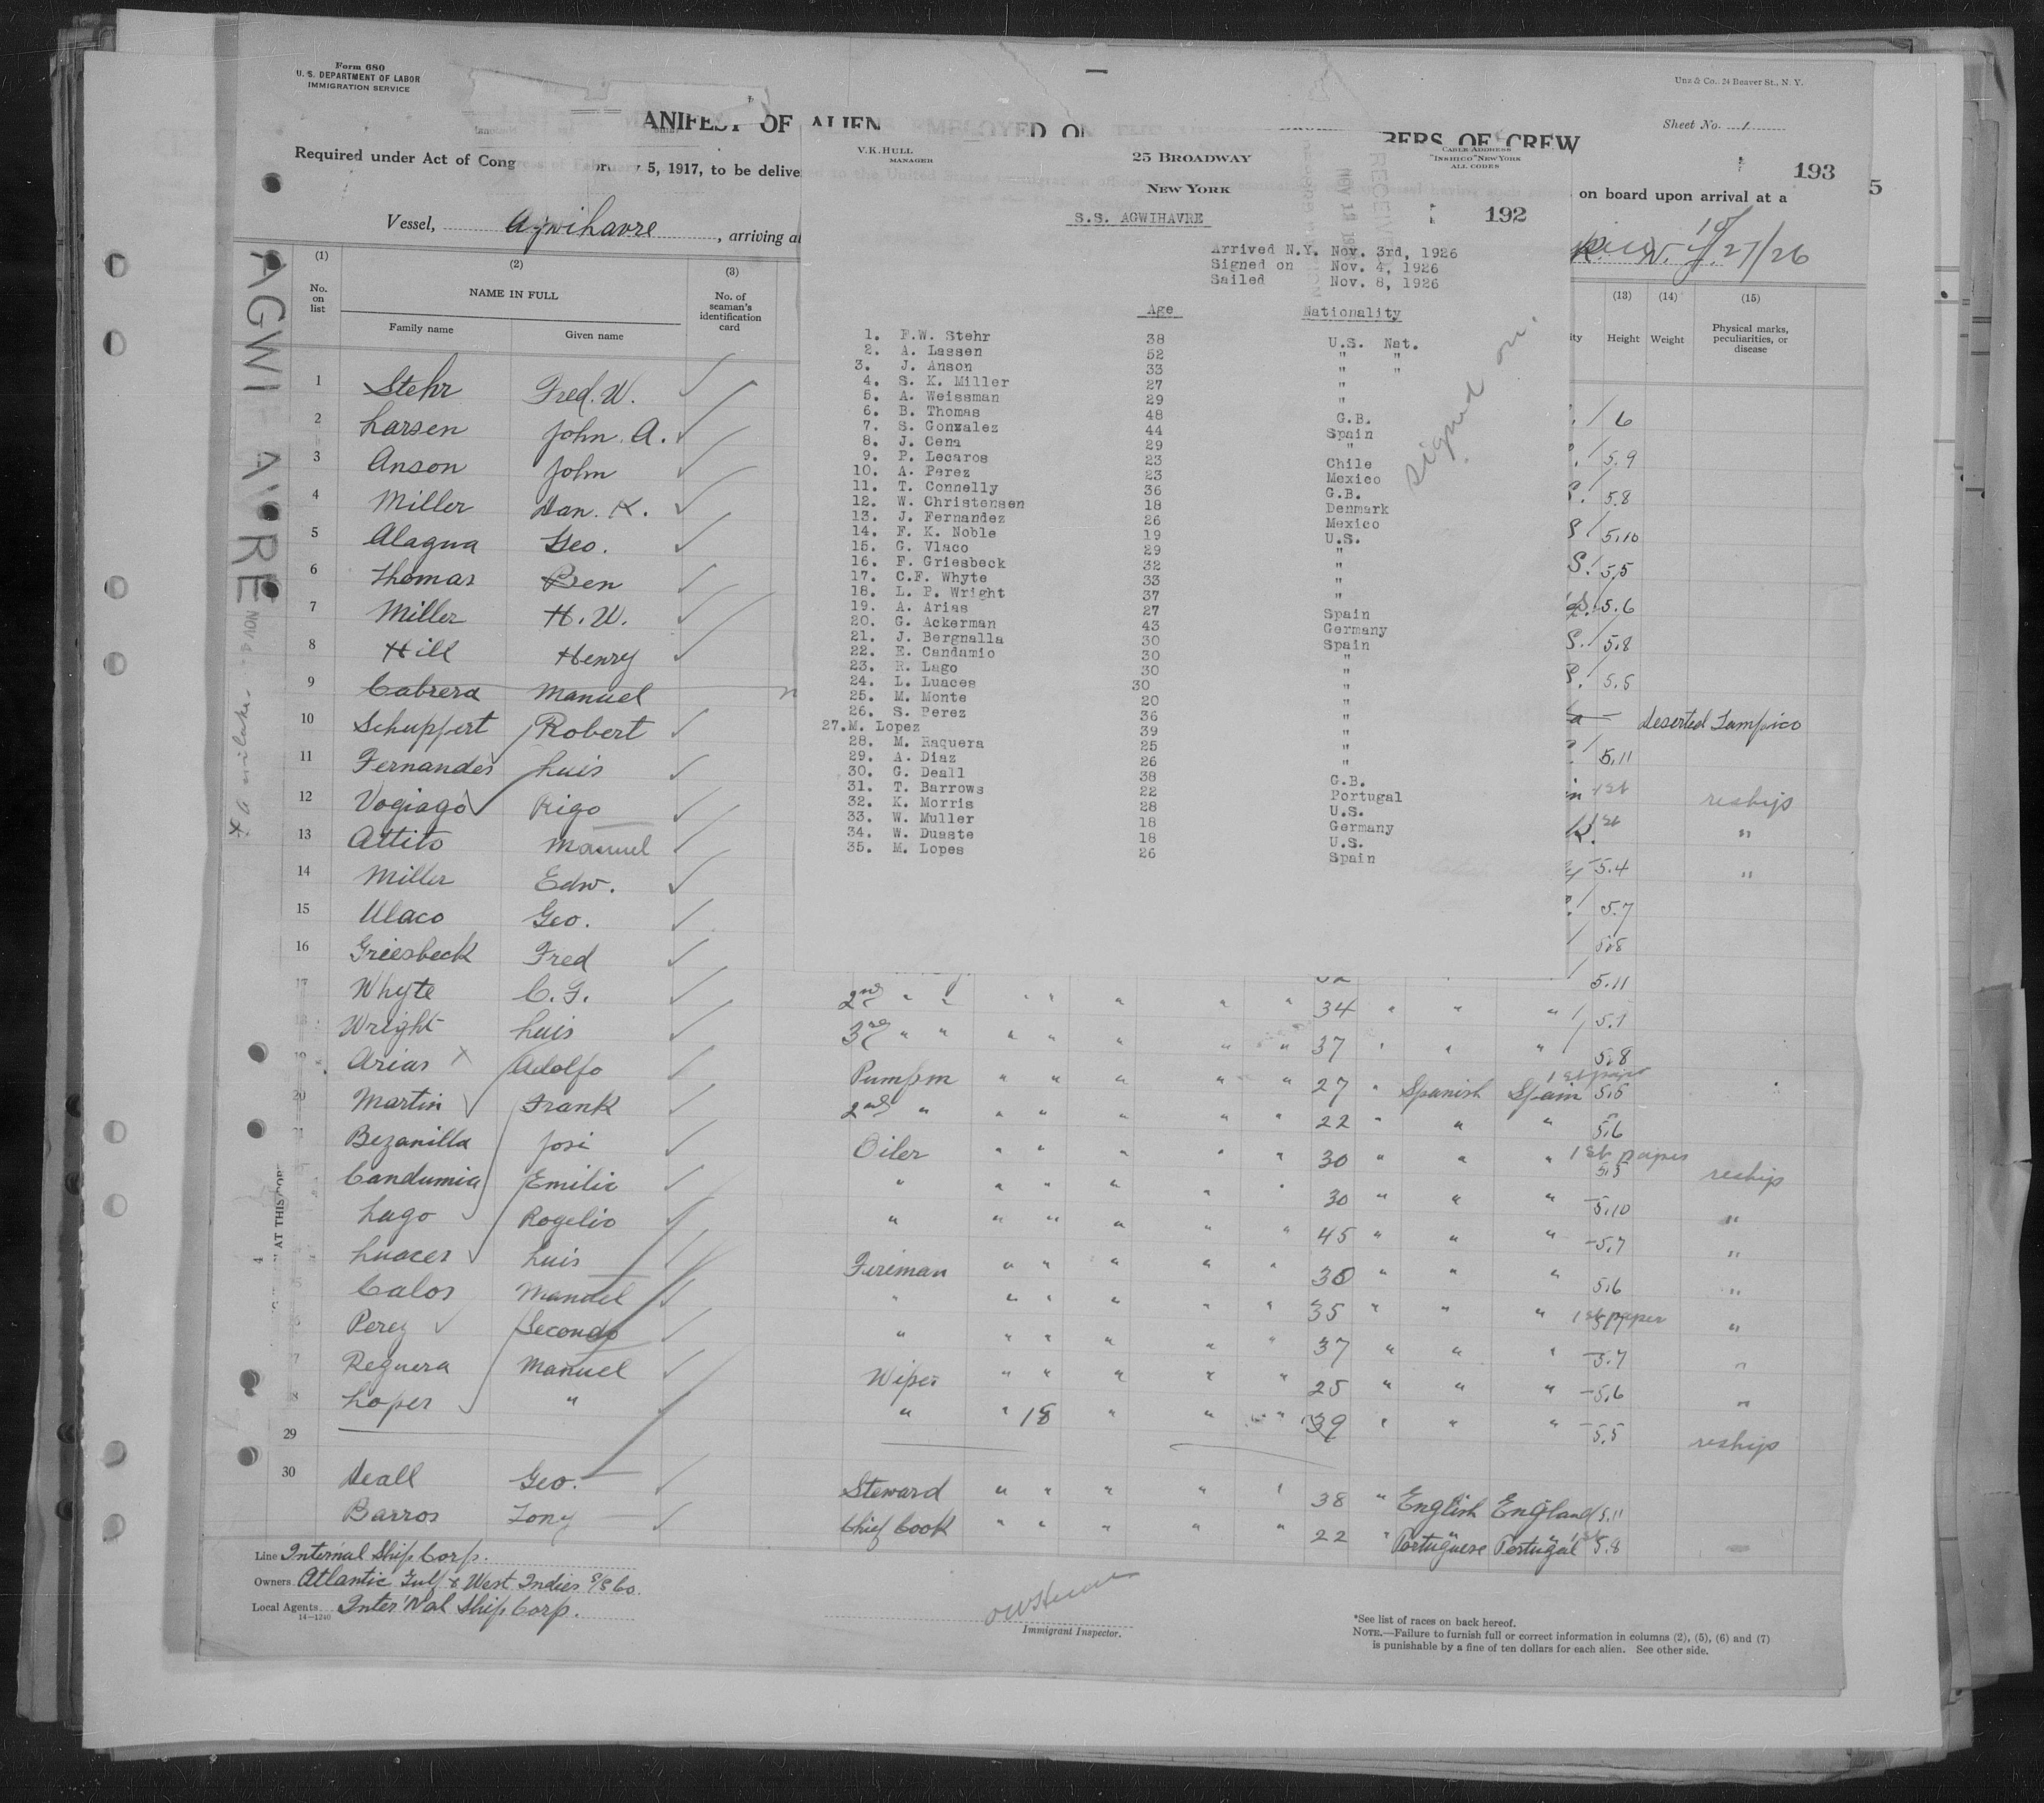 Form 680
U. S. DEPARTMENT OF LABOR
IMMIGRATION SERVICE
Unz & Co., 24 Beaver St., N. Y.
ANIFEST OF ALIEN
BERS OF CREW
Sheet No. 1
Required under Act of Cong
5, 1917, to be delive
on board upon arrival at a
193
5
Vessel, Agwihavre, arriving at
10/27/26
AGWI HAVRE
NOV
V.K. HULL
MANAGER
25 BROADWAY
NEW YORK
CABLE ADDRESS
"INSHICO" NEW YORK
ALL CODES
S.S. AGWIHAVRE
192
Arrived N.Y. Nov. 3rd, 1926
Signed on Nov. 4, 1926
Sailed Nov. 8, 1926
signed on.
Age Nationality
1. F.W. Stehr 38 U.S. Nat.
2. A. Lassen 52 " "
3. J. Anson 33 " "
4. S. K. Miller 27 "
5. A. Weissman 29 "
6. B. Thomas 48 G.B.
7. S. Gonzalez 44 Spain
8. J. Cena 29 "
9. P. Lecaros 23 Chile
10. A. Perez 23 Mexico
11. T. Connelly 36 G.B.
12. W. Christensen 18 Denmark
13. J. Fernandez 26 Mexico
14. F. K. Noble 19 U.S.
15. G. Vlaco 29 "
16. F. Griesbeck 32 "
17. C.F. Whyte 33 "
18. L. P. Wright 37 "
19. A. Arias 27 Spain
20. G. Ackerman 43 Germany
21. J. Bergnalla 30 Spain
22. E. Candamio 30 "
23. R. Lago 30 "
24. L. Luaces 30 "
25. M. Monte 20 "
26. S. Perez 36 "
27. M. Lopez 39 "
28. M. Raquera 25 "
29. A. Diaz 26 "
30. G. Deall 38 G.B.
31. T. Barrows 22 Portugal
32. K. Morris 28 U.S.
33. W. Muller 18 Germany
34. W. Duaste 18 U.S.
35. M. Lopes 26 Spain
(1) (2) (3) (13) (14) (15)
No. on list
NAME IN FULL
Family name Given name
No. of seaman's identification card
ity Height Weight
Physical marks, peculiarities, or disease
1 Stehr Fred. W. 6
2 Larsen John. A. 5.9
3 Anson John 5.8
4 Miller Dan. K. 5.10
5 Alagna Geo. 5.5
6 Thomas Ben 5.6
7 Miller H. W. 5.8
8 Hill Henry 5.5
9 Cabrera Manuel Deserted Tampico
10 Schuppert Robert 5.11
11 Fernandes Luis reship
12 Vogiago Rigo "
13 Attito Manuel 5.4 "
14 Miller Edw. 5.7
15 Ulaco Geo. 5.8
16 Griesbeck Fred 5.11
17 Whyte C. G. 2nd " " " " " " " 34 " " " 5.1
18 Wright Luis 3rd " " " " " " " 37 " " " 5.8
19 Arias Adolfo Pumpm " " " " " 27 " Spanish Spain 5.5
20 Martin Frank 2nd " " " " " " 22 " " " 5.6
21 Bezanilla Josi Oiler " " " " " 30 " " " 1st paper 5.5 reship
Candumia Emilio " " " " " " 30 " " " 5.10 "
Lago Rogelio " " " " " " 45 " " " 5.7 "
Luaces Luis Fireman " " " " " 30 " " " 5.6 "
Calos Manuel " " " " " " 35 " " " 1st paper "
Perez Secondo " " " " " " 37 " " " 5.7 "
Reguera Manuel Wiper " " " " " 25 " " " 5.6 "
Lopes " " " 18 " " " 39 " " " 5.5 reship
29
30 Deall Geo. Steward " " " " " 38 " English England 5.11
Barros Tony Chief Cook " " " " " 22 " Portuguese Portugal 5.8
Line Internal Ship Corp.
Owners Atlantic Gulf & West Indies S/S Co.
Local Agents Inter'Nal Ship Corp.
14—1240
Immigrant Inspector.
*See list of races on back hereof.
NOTE.—Failure to furnish full or correct information in columns (2), (5), (6) and (7)
is punishable by a fine of ten dollars for each alien. See other side.